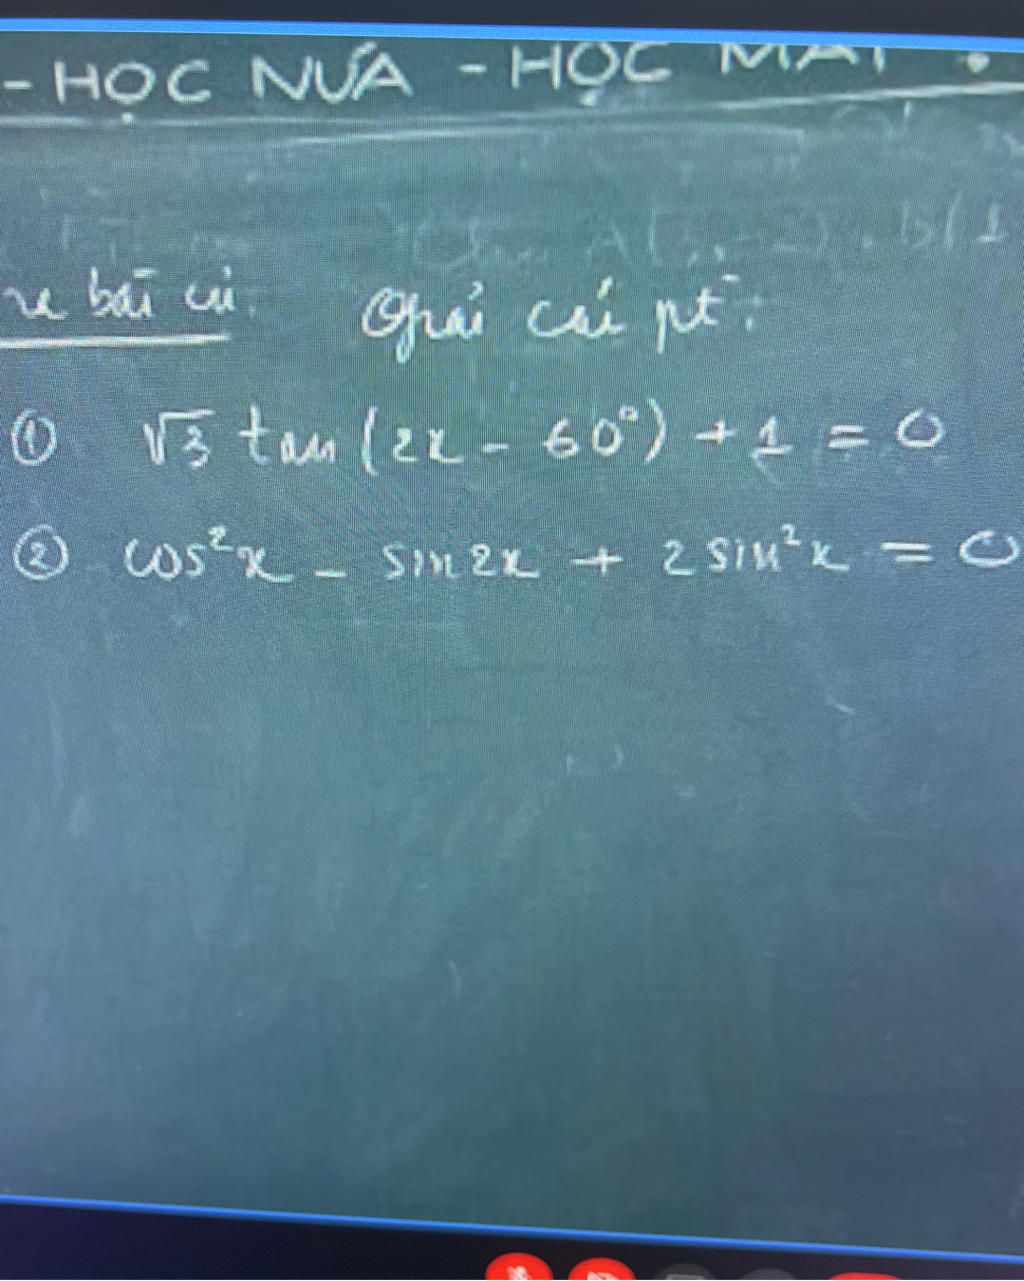 - HỌC NỮA - HỌC MÃI.
bài cũ. Giải các pt:
① √3 tan (2x - 60°) + 1 = 0
② cos²x - sin2x + 2sin²x = 0